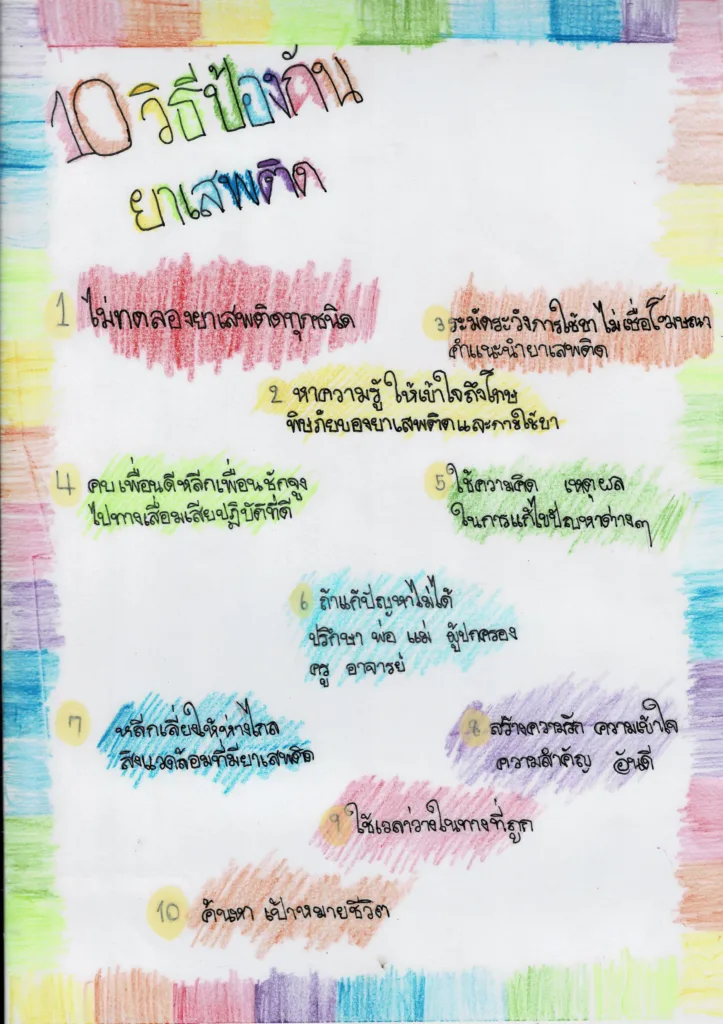 10 วิธีป้องกัน
ยาเสพติด
1 ไม่ทดลองยาเสพติดทุกชนิด
2 หาความรู้ ให้เข้าใจถึงโทษ
พิษภัยของยาเสพติดและการใช้ยา
3 ระมัดระวังการใช้ยา ไม่เชื่อโฆษณา
คำแนะนำยาเสพติด
4 คบเพื่อนดีหลีกเพื่อนชักจูง
ไปทางเสื่อมเสียปฏิบัติที่ดี
5 ใช้ความคิด เหตุผล
ในการแก้ไขปัญหาต่างๆ
6 ถ้าแก้ปัญหาไม่ได้
ปรึกษา พ่อ แม่ ผู้ปกครอง
ครู อาจารย์
7 หลีกเลี่ยงให้ห่างไกล
สิ่งแวดล้อมที่มียาเสพติด
8 สร้างความรัก ความเข้าใจ
ความสำคัญ อันดี
9 ใช้เวลาว่างในทางที่ถูก
10 ค้นหา เป้าหมายชีวิต